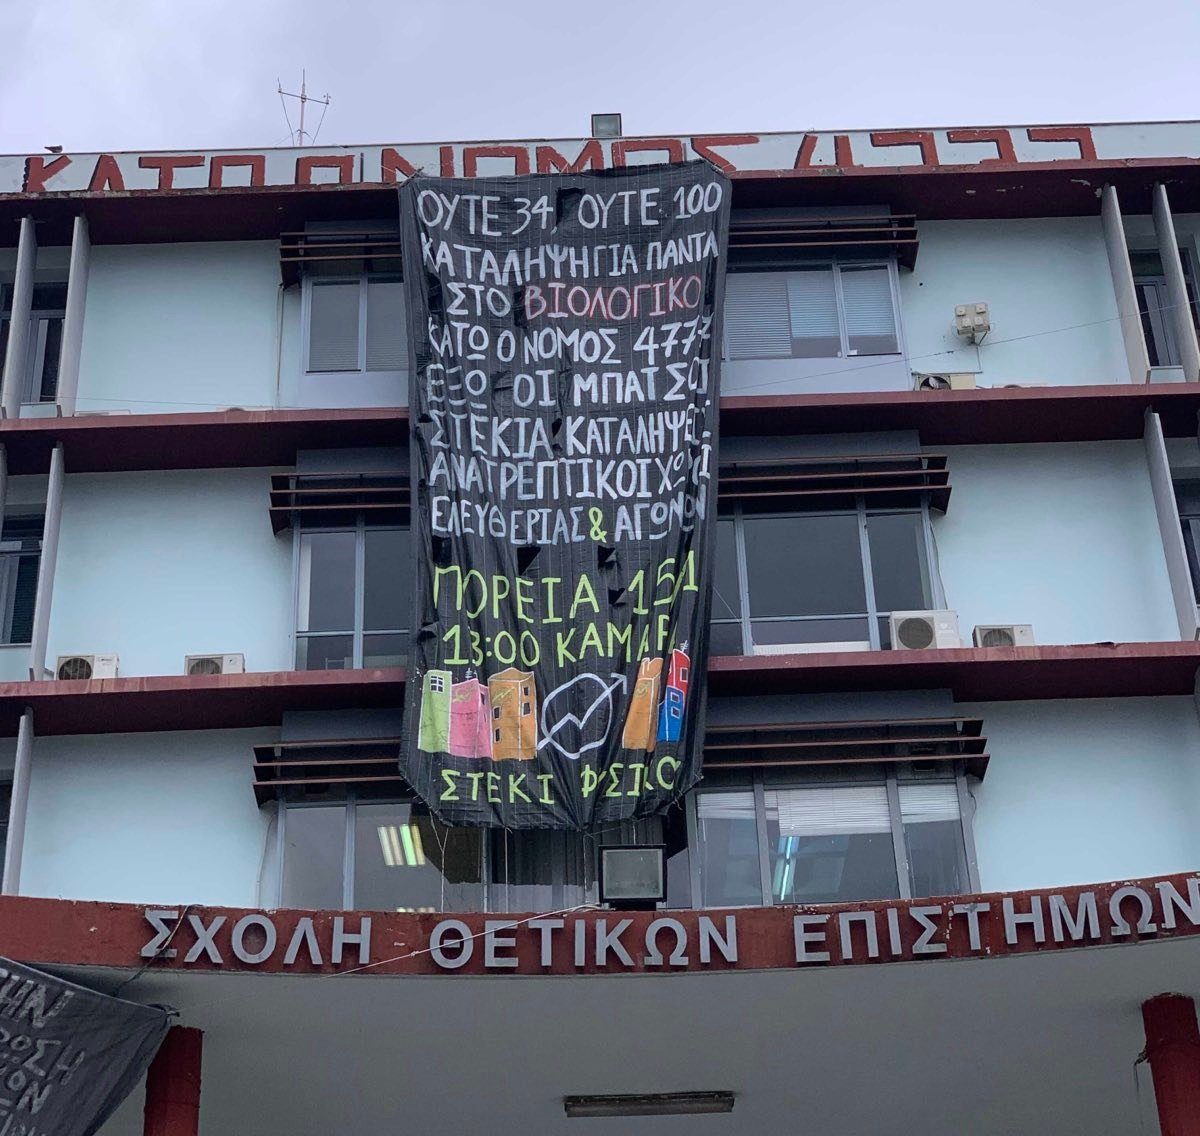 ΚΑΤΩ Ο ΝΟΜΟΣ 4777
ΟΥΤΕ 34, ΟΥΤΕ 100
ΚΑΤΑΛΗΨΗ ΓΙΑ ΠΑΝΤΑ
ΣΤΟ ΒΙΟΛΟΓΙΚΟ
ΚΑΤΩ Ο ΝΟΜΟΣ 4777
ΕΞΩ ΟΙ ΜΠΑΤΣΟΙ
ΣΤΕΚΙΑ ΚΑΤΑΛΗΨΕΙΣ
ΑΝΑΤΡΕΠΤΙΚΟΙ ΧΩΡΟΙ
ΕΛΕΥΘΕΡΙΑΣ & ΑΓΩΝΩΝ
ΠΟΡΕΙΑ 15/1
13:00 ΚΑΜΑΡΑ
ΣΤΕΚΙ ΦΥΣΙΚΟ
ΣΧΟΛΗ ΘΕΤΙΚΩΝ ΕΠΙΣΤΗΜΩΝ